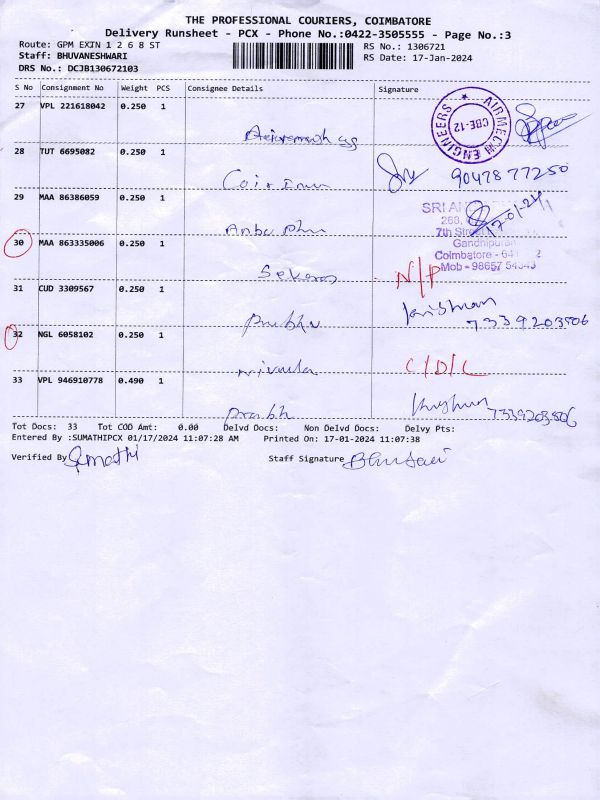 THE PROFESSIONAL COURIERS, COIMBATORE
Delivery Runsheet - PCX - Phone No.:0422-3505555 - Page No.:3
Route: GPM EXTN 1 2 6 8 ST RS No.: 1306721
Staff: BHUVANESHWARI RS Date: 17-Jan-2024
DRS No.: DCJB130672103
S No Consignment No Weight PCS Consignee Details Signature
27 VPL 221618042 0.250 1
AIRMECH ENGINEERS CBE-12
28 TUT 6695082 0.250 1
9047877250
29 MAA 86386059 0.250 1
SRI
17-01-24
7th Street
Anbu
Gandhipuram
30 MAA 863335006 0.250 1
Coimbatore - 64
Mob - 98657 54543
Sekaran N/P
31 CUD 3309567 0.250 1
Prabhu 7339203506
32 NGL 6058102 0.250 1
C/D/L
33 VPL 946910778 0.490 1
7339203506
Tot Docs: 33 Tot COD Amt: 0.00 Delvd Docs: Non Delvd Docs: Delvy Pts:
Entered By :SUMATHIPCX 01/17/2024 11:07:28 AM Printed On: 17-01-2024 11:07:38
Verified By Sumathi Staff Signature